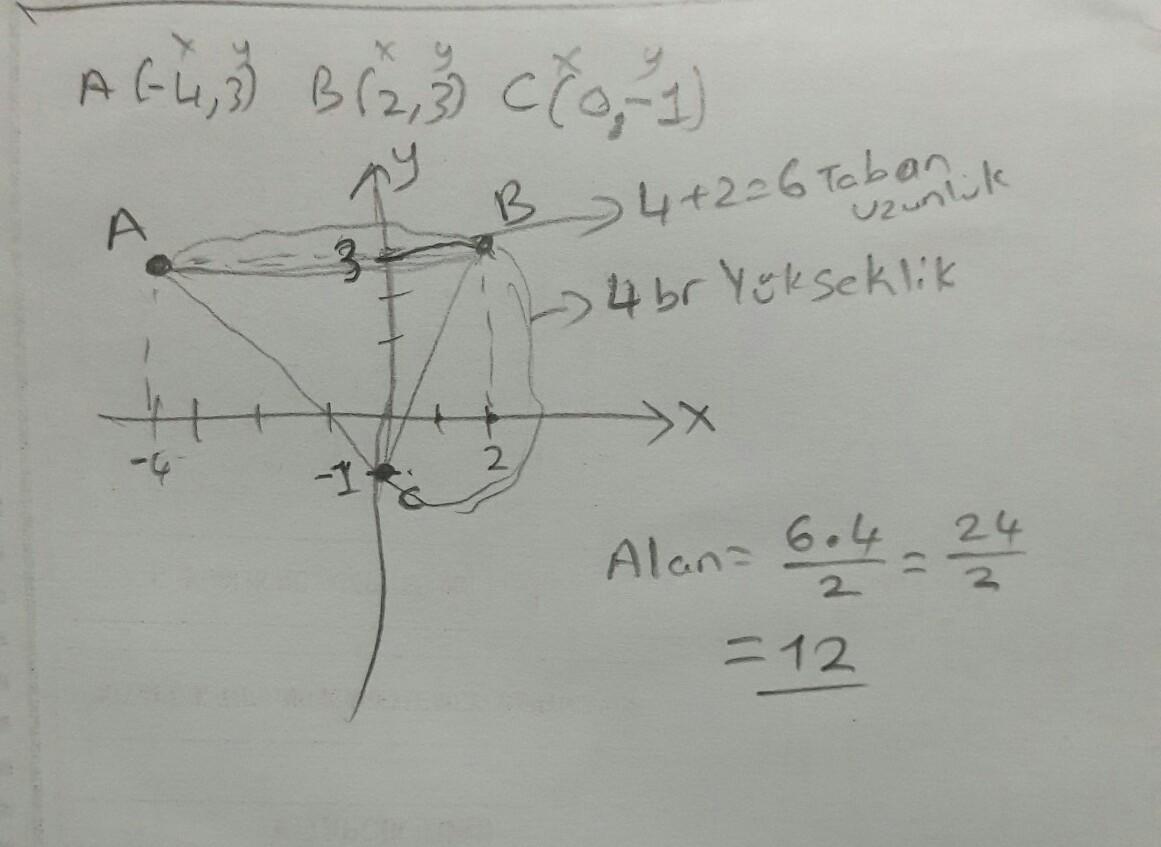 x y x y x y
A (-4,3) B(2,3) C(0,-1)
y
A B 4+2=6 Taban
uzunluk
3
4 br Yükseklik
x
-4 2
-1 C
Alan= 6.4/2 = 24/2
=12